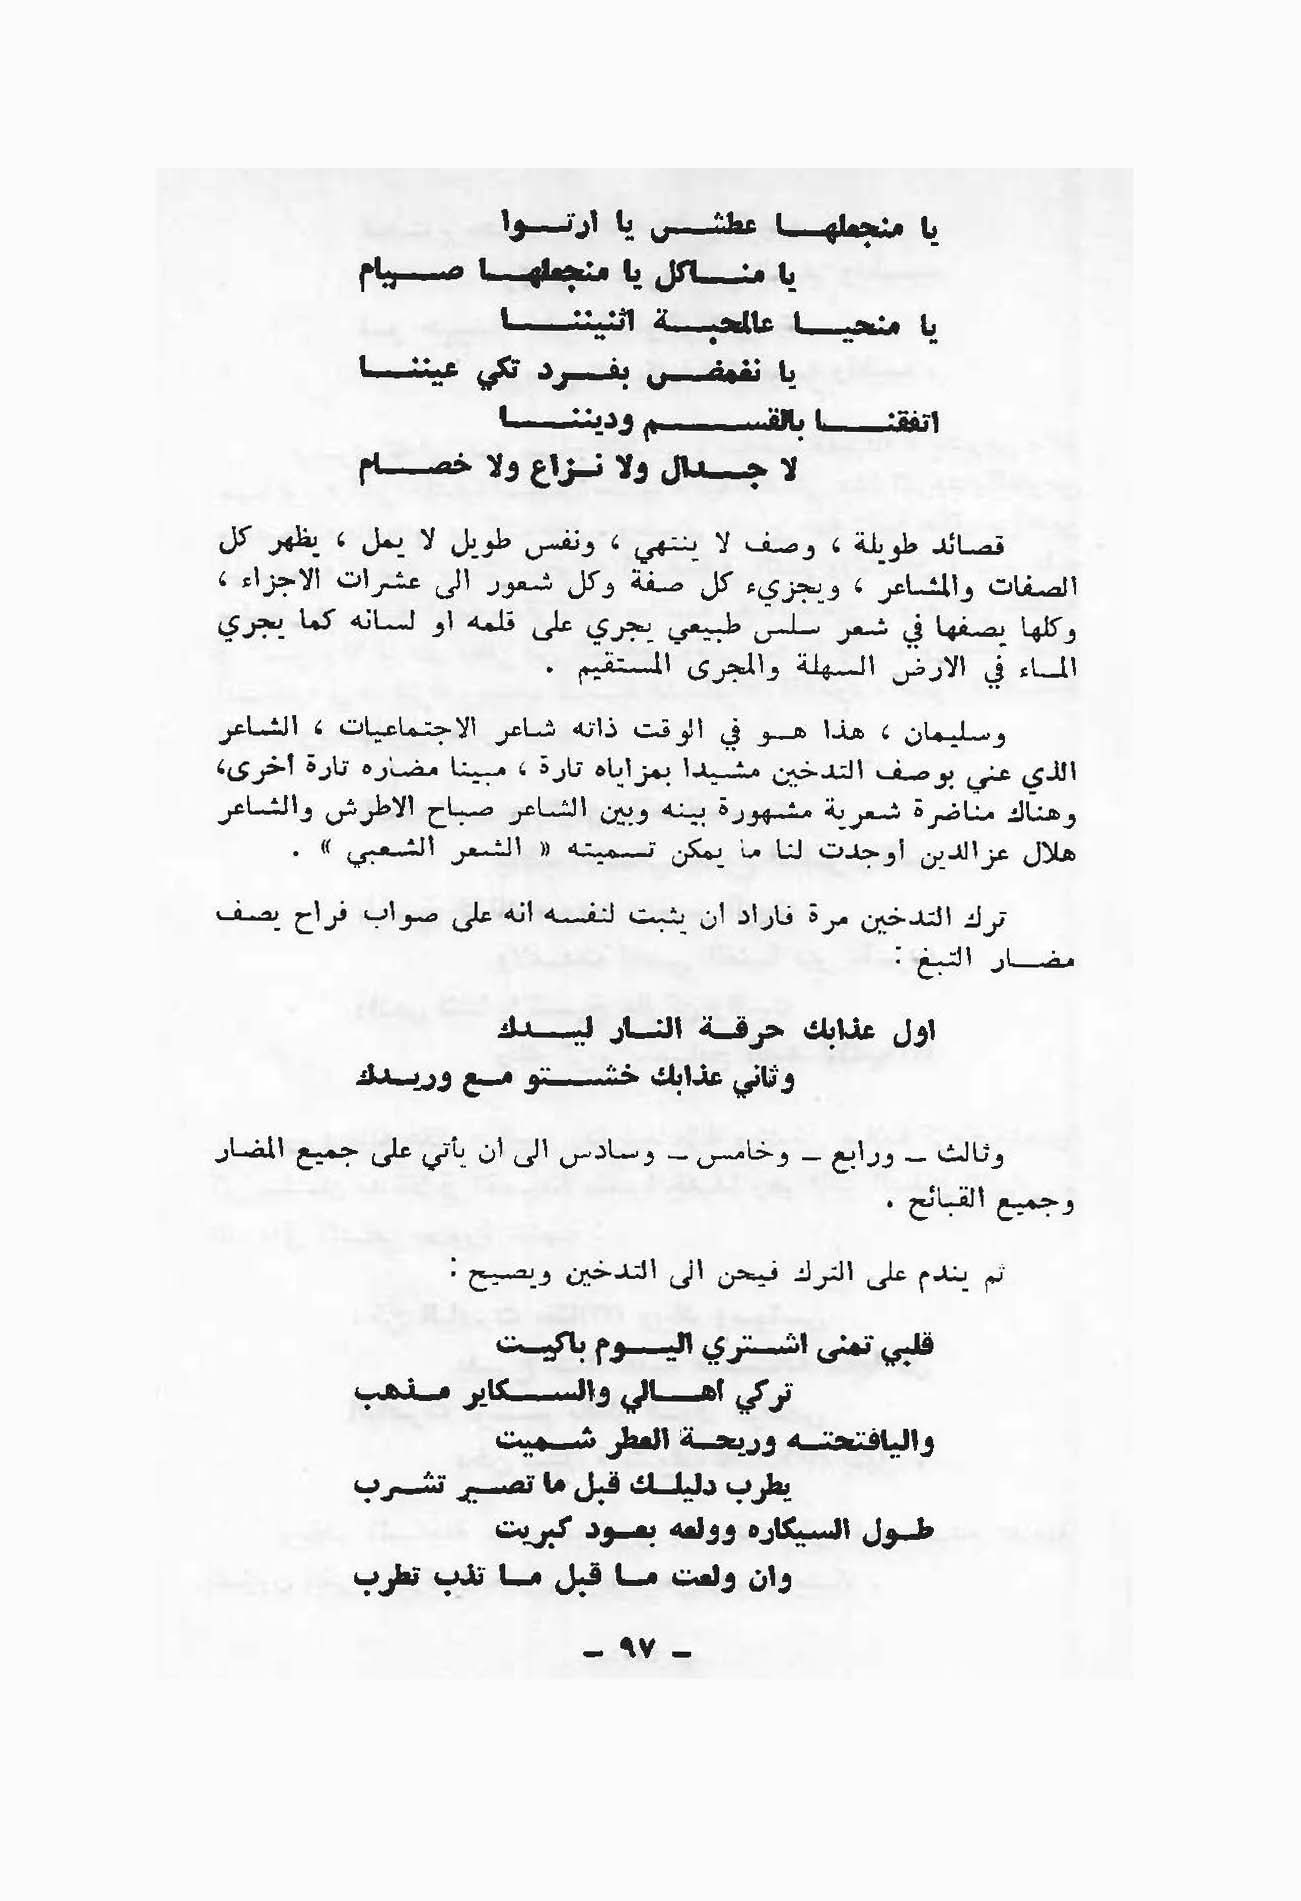 يا منجعلها عطش يا ارتوا
يا مناكل يا منجعلها صيام
يا منحيا عالمحبة اثنيننا
يا نغمض بفرد تكي عيننا
اتفقنا بالقسم وديننا
لا جدال ولا نزاع ولا خصام
قصائد طويلة ، وصف لا ينتهي ، ونفس طويل لا يمل ، يظهر كل
الصفات والمشاعر ، ويجزيء كل صفة وكل شعور الى عشرات الاجزاء ،
وكلها يصفها في شعر سلس طبيعي يجري على قلمه او لسانه كما يجري
الماء في الارض السهلة والمجرى المستقيم .
وسليمان ، هذا هو في الوقت ذاته شاعر الاجتماعيات ، الشاعر
الذي عني بوصف التدخين مشيدا بمزاياه تارة ، مبينا مضاره تارة أخرى،
وهناك مناضرة شعرية مشهورة بينه وبين الشاعر صباح الاطرش والشاعر
هلال عزالدين اوجدت لنا ما يمكن تسميته « الشعر الشعبي » .
ترك التدخين مرة فاراد ان يثبت لنفسه انه على صواب فراح يصف
مضار التبغ :
اول عذابك حرقة النار ليدك
وثاني عذابك خشتو مع وريدك
وثالث – ورابع – وخامس – وسادس الى ان يأتي على جميع المضار
وجميع القبائح .
ثم يندم على الترك فيحن الى التدخين ويصيح :
قلبي تمنى اشتري اليوم باكيت
تركي أهالي والسكاير مذهب
واليافتحته وريحة العطر شميت
يطرب دليلك قبل ما تصير تشرب
طول السيكاره وولعه بعود كبريت
وان ولعت ما قبل ما تذب تطرب
– ٩٧ –